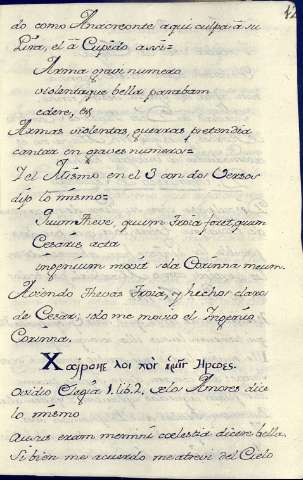 do como Anacreonte aqui culpa â su
Lira, el â Cupido assi=
Arma gravi numero
violentaque bella parabam
edere, etc
Armas violentas, guerras pretendia
cantar en graves numeros=
Y el Mismo en el 3 con dos Versos
dijo lo mismo=
Quum Theve, quum Troia foret, quum
Cesaris acta
ingenium movit sola Corinna meum.
Aviendo Thevas Troia, y hechos claros
de Cesar, solo me movio el Ingenio
Corinna.
Ovidio Elegia 1. lib. 2. de los Amores dice
lo mismo
ausus eram memini coelestia dicere bella.
Si bien me acuerdo me atrevi del Cielo